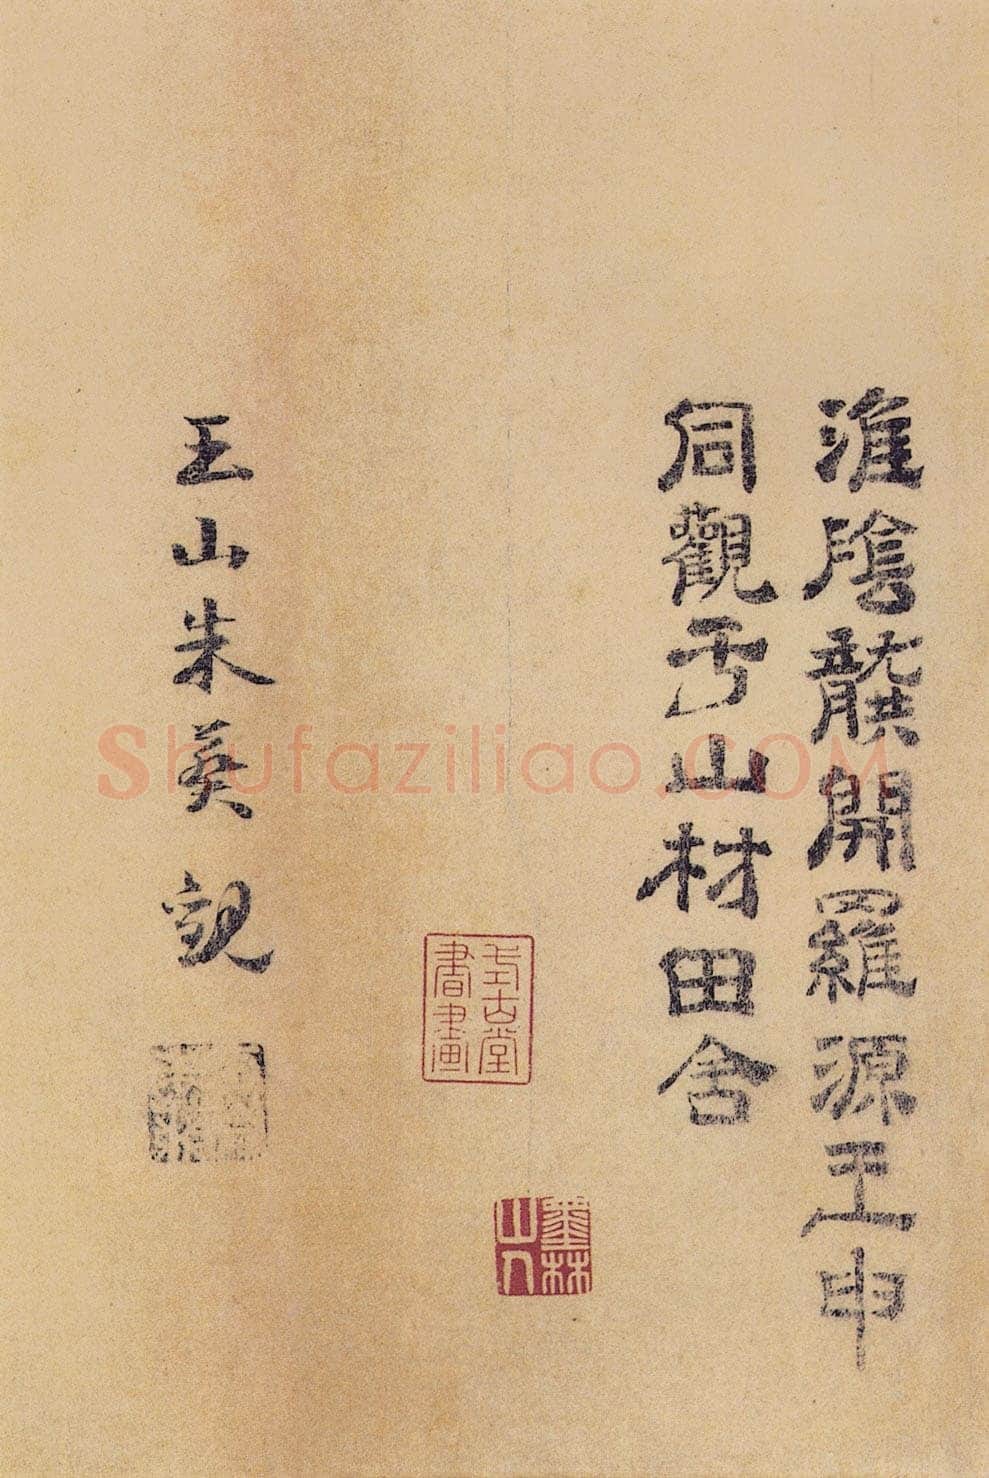 淮陰龔開羅源王申
同觀于山村田舍
玉山朱葵觀
式古堂
書畫
墨林
山人
Shufaziliao.COM